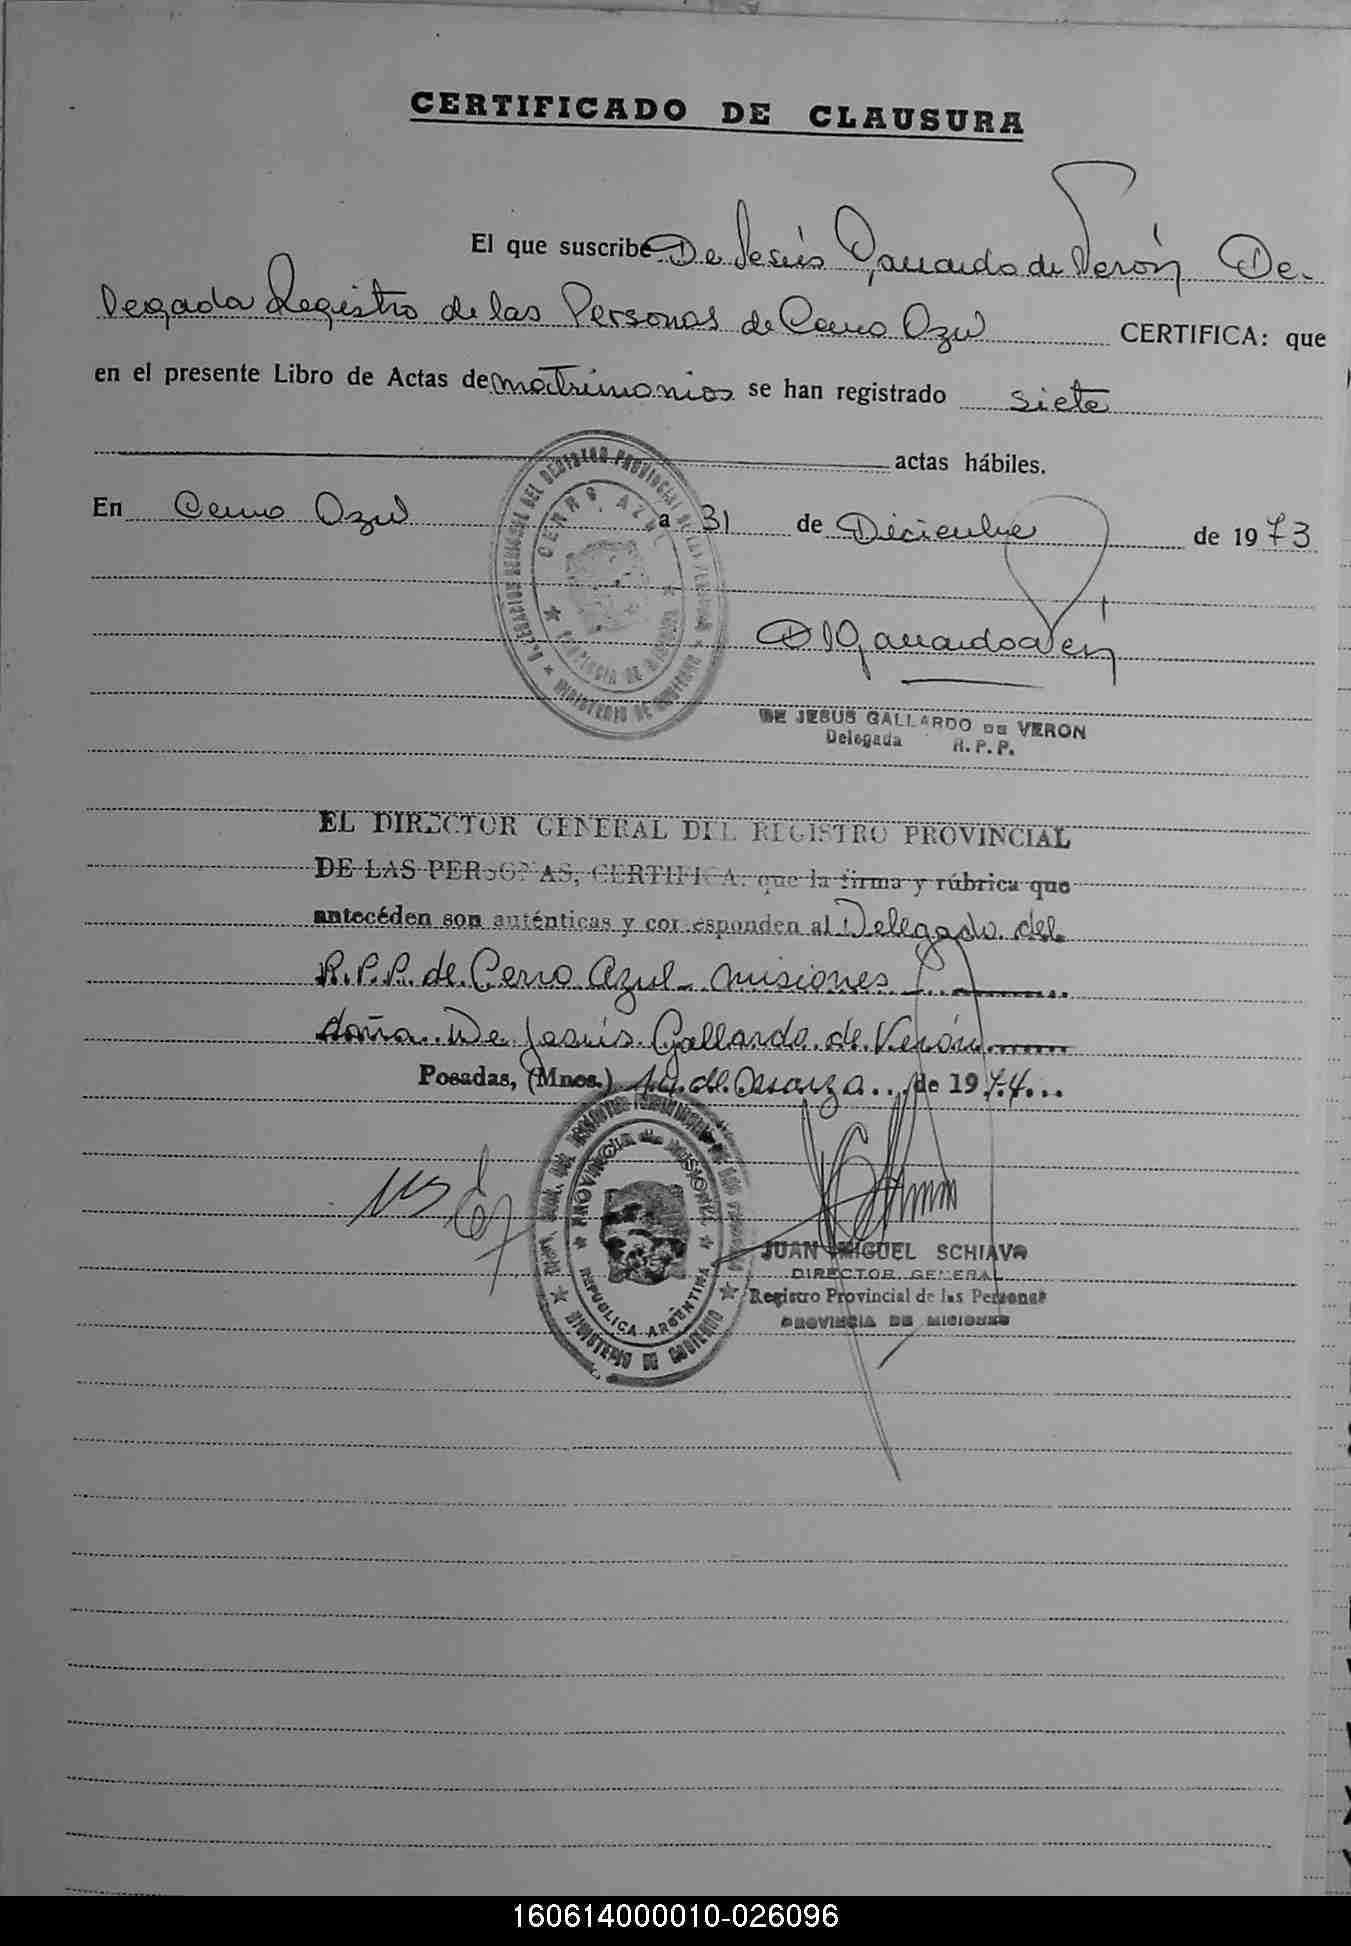 CERTIFICADO DE CLAUSURA
El que suscribe De Jesús Gallardo de Verón De-
legada Registro de las Personas de Cerro Azul CERTIFICA: que
en el presente Libro de Actas de matrimonios se han registrado siete
actas hábiles.
En Cerro Azul a 31 de Diciembre de 1973
CERRO AZUL
PROVINCIA DE MISIONES
MINISTERIO DE GOBIERNO
DE JESUS GALLARDO DE VERON
Delegada R.P.P.
EL DIRECTOR GENERAL DEL REGISTRO PROVINCIAL
DE LAS PERSONAS, CERTIFICA: que la firma y rúbrica que
antecéden son auténticas y corresponden al Delegado del
R.P.P. de Cerro Azul - Misiones
doña De Jesús Gallardo de Verón
Posadas, (Mnes.) 19 de Marzo de 1974
PROVINCIA de MISIONES
REPUBLICA ARGENTINA
MINISTERIO DE GOBIERNO
JUAN MIGUEL SCHIAVO
DIRECTOR GENERAL
Registro Provincial de las Personas
PROVINCIA DE MISIONES
160614000010-026096